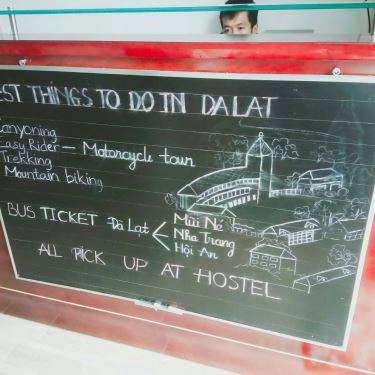 EST THINGS TO DO IN DALAT
anyoning
Easy Rider — Motorcycle tour
Trekking
Mountain biking
BUS TICKET Đà Lạt < Mũi Né
Nha Trang
Hội An
ALL PICK UP AT HOSTEL